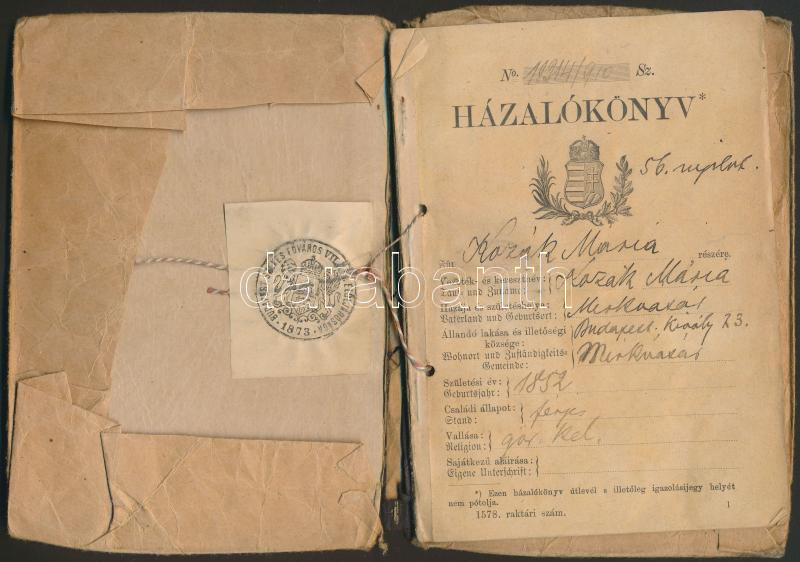 No. 19314/910 Sz.
HÁZALÓKÖNYV*
56.
Für Kozák Maria részére.
Vezeték- és keresztnév:
Tauf- und Zuname: Kozák Mária
Hazája és születéshelye:
Vaterland und Geburtsort: Merkvásár
Állandó lakása és illetőségi
községe: Budapest. Király 23.
Wohnort und Zuständigkeits-
Gemeinde: Merkvásár
Születési év:
Geburtsjahr: 1852
Családi állapot:
Stand: férjes
Vallása:
Religion: gör. kel.
Sajátkezű aláírása:
Eigene Unterschrift:
*) Ezen házalókönyv útlevél s illetőleg igazolásijegy helyét
nem pótolja.
1578. raktári szám. 1
1873
darabanth.com